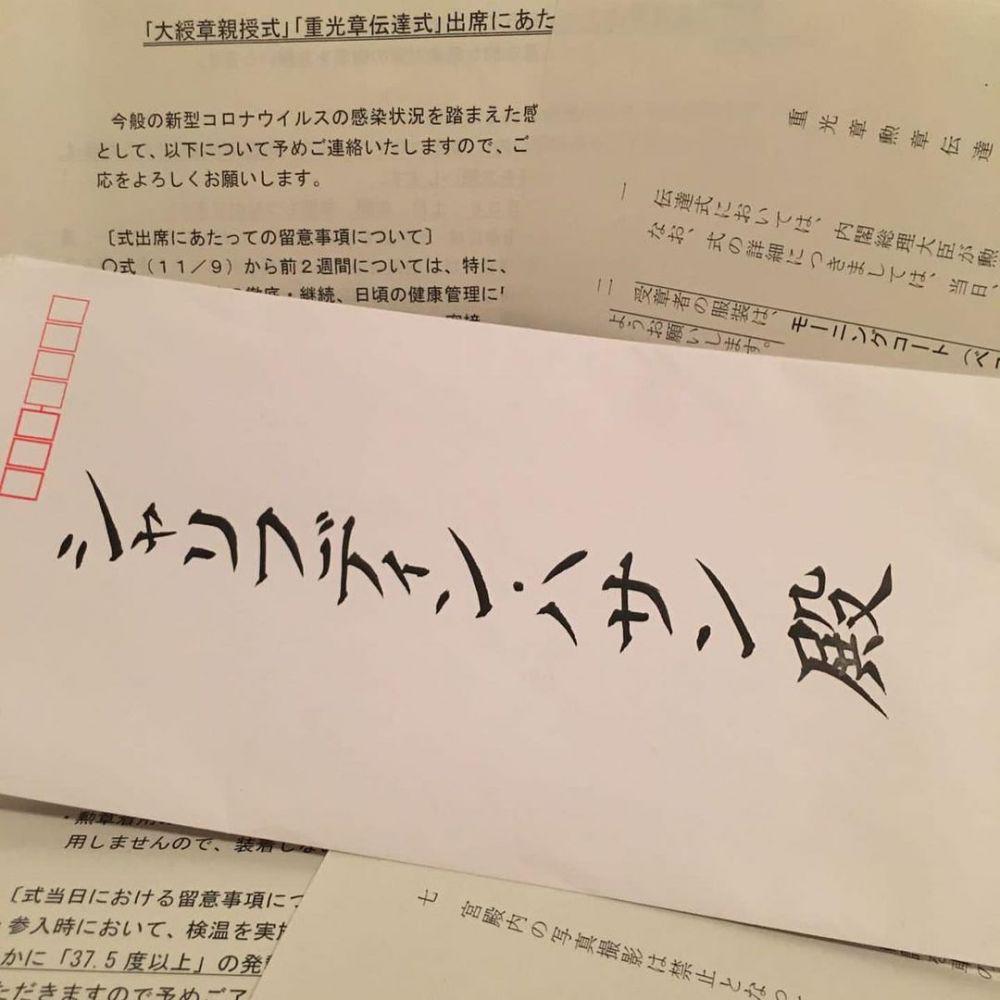 「大綬章親授式」「重光章伝達式」出席にあた
今般の新型コロナウイルスの感染状況を踏まえた感
として、以下について予めご連絡いたしますので、ご
応をよろしくお願いします。
〔式出席にあたっての留意事項について〕
〇式（11／9）から前2週間については、特に、
徹底・継続、日頃の健康管理に
重光章勲章伝達
一 伝達式においては、内閣総理大臣が勲
なお、式の詳細につきましては、当日、
二 受章者の服装は、モーニングコート（ベス
ようお願いします。
シャリフディン・ハサン 殿
・勲章着用
用しませんので、装着しな
〔式当日における留意事項につ
・参入時において、検温を実施
かに「37.5度以上」の発
ただきますので予めご了
七 宮殿内の写真撮影は禁止となっ